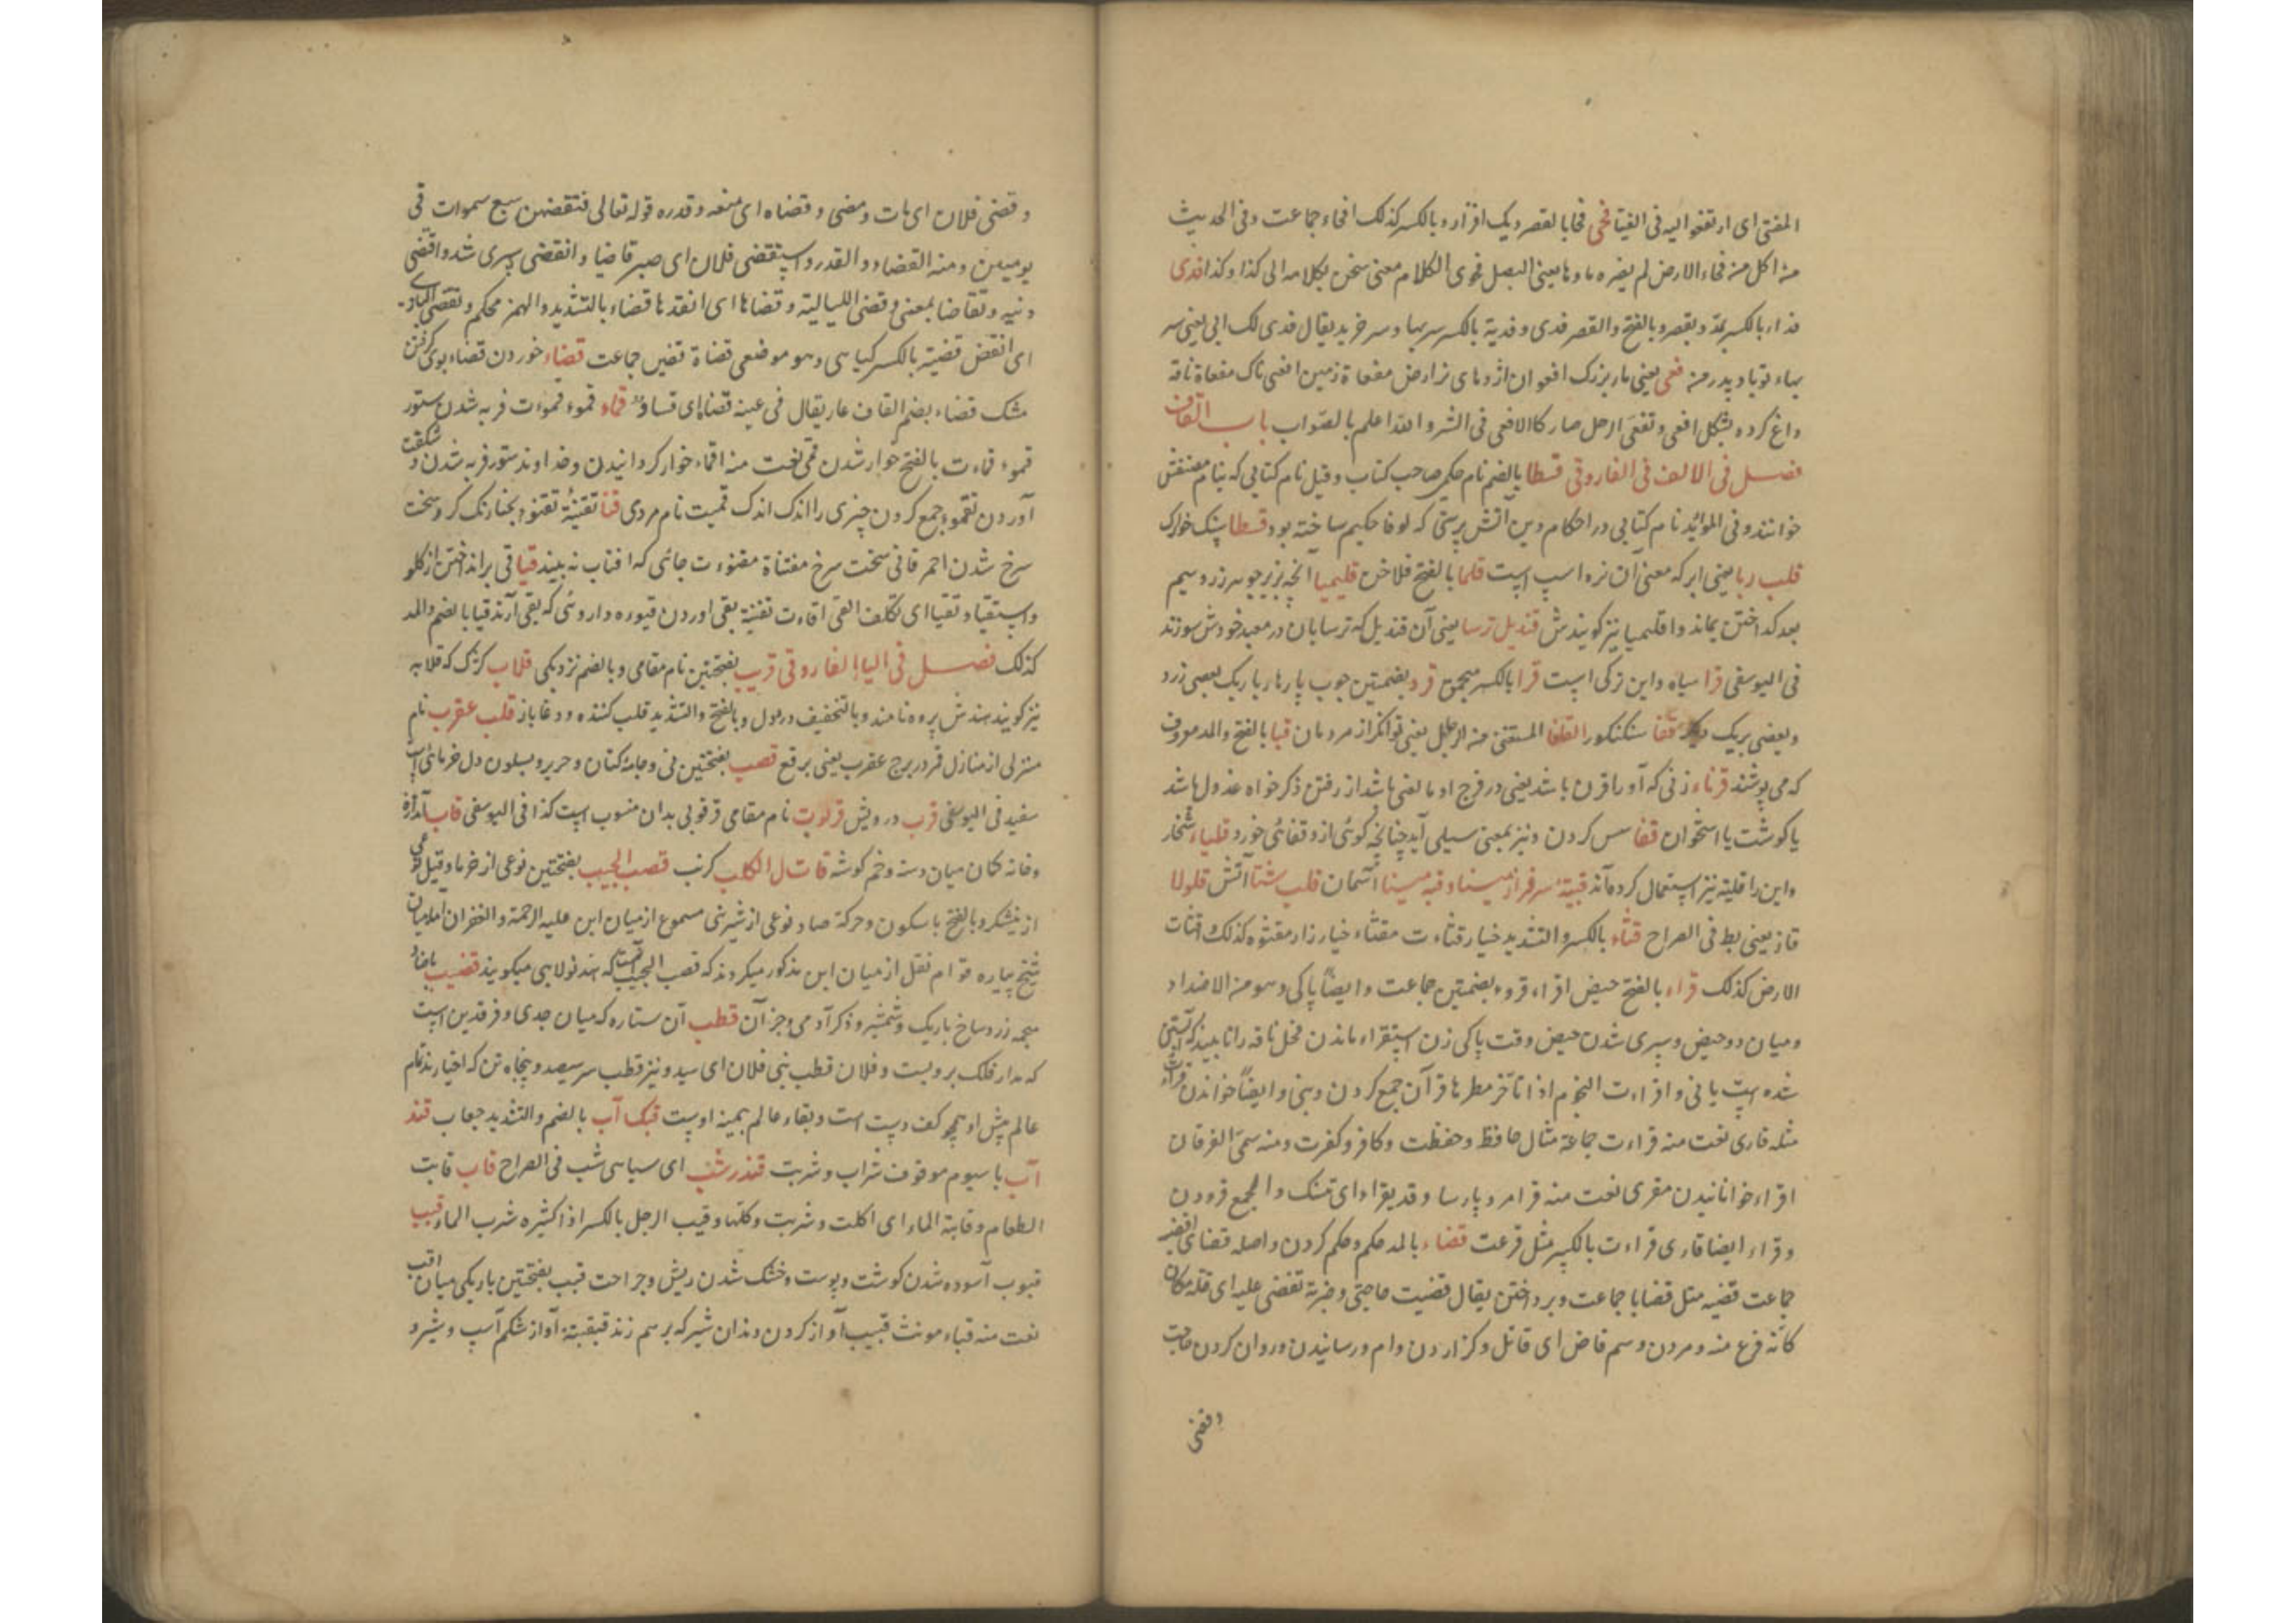 المفتی ای ارتفعوا الیه فی الفتیا فحی فحا بالقصر دیک افزار و بالکسر کذلک افحاء جماعت و فی الحدیث
من اکل من فحاء الارض لم یضره ماوها یعنی البصل فحوی الکلام معنی سخن بکلامه الی کذا و کذا فدی
فداء بالکسر یمد و یقصر و بالفتح و القصر فدی و فدیة بالکسر سربها و سر خرید یقال فدی لک ابی یعنی سر
بهاء تو باد پدر من فعی یعنی مار بزرک افعوان اژدهای نر ارض مفعاة زمین افعی ناک مفعاة ناقه
داغ کرده بشکل افعی و تفعی الرجل صار کالافعی فی الشر و الله اعلم بالصواب باب القاف
فصل فی الالف فی الفاروقی قسطا بالضم نام حکیم صاحب کتاب و قیل نام کتابی که بنام مصنفش
خوانند و فی الموائد نام کتابی در احکام دین آتش پرستی که لوقا حکیم ساخته بود قسطا
قلب ربا یعنی ابر که معنی آن نره اسپ است قلما بالفتح فلاخن قلیمیا آنچه بزیر بوته زر و سیم
بعد کداختن بماند و اقلیمیا نیز کویندش قندیل ترسا یعنی آن قندیل که ترسایان در معبد خودش سوزند
فی الیوسفی قرا سیاه و این ترکی است قرا بالکسر قرد بضمتین چوب پارها باریک بعضی زرد
و بعضی بریک دیگر قفا سنکنکور القلفا المستغنی عنه الرجل یعنی توانکر از مردمان قبا بالفتح و المد معروف
که می پوشند قرناء زنی که او را قرن باشد یعنی در فرج او مانعی باشد از رفتن ذکر خواه غدول باشد
یا کوشت یا استخوان قفا پس کردن و نیز بمعنی سیلی آید چنانچه کوئی از و قفائی خورد قلیاء شخار
و این را قلیه نیز استعمال کرده اند قبۀ سرفراز مینا و قبه مینا آسمان قلب شتا آتش قلولا
قاز یعنی بط فی الصراح قثاء بالکسر و التشدید خیار قثاءت مقثاء خیارزار مقثوه کذلک اقثات
الارض کذلک قراء بالفتح حیض اقراء قروء بضمتین جماعت و ایضا پاکی و هو من الاضداد
و میان دو حیض و سپری شدن حیض و وقت پاکی زن استقراء ماندن فحل ناقه را تا بیند که آبستن
شده است یا نی و اقراءت النجوم اذا تاخر مطرها قرآن جمع کردن و نبی و ایضا خواندن قراءة
مثله قاری نعت منه قراءت جماعة مثال حافظ و حفظت و کافر و کفرت و منه سمی الفرقان
اقراء خوانانیدن مقری نعت منه قرا مرد پارسا و قد یقراء ای تنسک و الجمع قرودن
و قراء ایضا قاری قراءت بالکسر مثل قرعت قضاء بالمد حکم و حکم کردن و اصله قضای اقضیه
جماعت قضیه مثل قضایا جماعت و پرداختن یقال قضیت حاجتی و ضربة تقضی علیه ای قتله مکان
کانه فرغ منه و مردن و سم قاض ای قاتل و کزاردن وام و رسانیدن و روان کردن حاجت
و قضی
و قضی فلان ای مات و مضی و قضاه ای صنعه و قدره قوله تعالی فقضهن سبع سموات فی
یومین و منه القضاء و القدر و استقضی فلان ای صیر قاضیا و انقضی سپری شد و اقتضی
دینه و تقاضا بمعنی و قضی اللبانة و قضاها ای انفذها قضاء بالتشدید و الهمز محکم و تقضی البازی
ای انقض قضیة بالکسر کیاهی و هو موضعی قضاة قضین جماعت قضاء خوردن قضاء بوی کرفتن
مشک قضاء بضم القاف عار یقال فی عینه قضاة ای فساد قماء قموء قموءت فربه شدن ستور
قموء قماءت بالفتح خوار شدن قمی نعت منه اقماء خوار کردانیدن و خداوند ستور فربه شدن و شکفت
آوردن تقموء جمع کردن چیزی را اندک اندک قمیت نام مردی قنا تقنیة تقنوء بحنا رنک کرد سخت
سرخ شدن احمر قانی سخت سرخ مقناة مقنوءت جائی که افتاب نه بیند قیا قی برانداختن از کلو
و استقیا و تقیا ای تکلف القی اقاءت تقیئة بقی اوردن قیوء داروئی که بقی آرند قیا بالضم و المد
کذلک فصل فی الباء الفاروقی قریب بفتحتین نام مقامی و بالضم نزدیکی قلاب کژک که قلابه
نیز کویند هندش نامند و بالتخفیف درد دل و بالفتح و التشدید قلب کننده و دغاباز قلب عقرب نام
منزلی از منازل قمر در برج عقرب یعنی برقع قصب بفتحتین نی و جامۀ کتان و حریر و بیلون دل خرمای است
سفید فی الیوسفی قرب درویش قرقوب نام مقامی قرقوبی بدان منسوب است کذا فی الیوسفی قاب اندازه
و خانه کمان میان دسته و خم کوشه قاتل الکلب کرنب قصب الجیب بفتحتین نوعی از خرما و قیل نوعی
از نیشکر و بالفتح با سکون و حرکة صاد نوعی از شیرینی مسموع از میان ابن علیه الرحمة و الغفران اما میان
شیخ پیاره قوام نقل از میان ابن مذکور میکردند که قصب الجیب آنست که هند نولاسی میکویند قضیب با ضاد
معجمه زرد شاخ باریک و شمشیر و ذکر آدمی و جز آن قطب آن ستاره که میان جدی و فرقدین است
که مدار فلک بر ویست و فلان قطب بنی فلان ای سید و نیز قطب سر سیصد و پنجاه تن که اخیارند تمام
عالم پیش او همچو کف دست است و بقاء عالم بهمین اوست قبک آب بالضم و التشدید حباب قند
آب با سیوم موقوف شراب و شربت قندر شب ای سیاهی شب فی الصراح قاب قابت
الطعام و قابة الماء ای اکلت و شربت و کلتها و قیب الرجل بالکسر اذا کثره شرب الماء قبب
قبوب آسوده شدن کوشت و پوست و خشک شدن ریش و جراحت قبب بفتحتین باریکی میان اقب
نعت منه قباء مونث قبیب آواز کردن دندان شیر که بر هم زند قبقبة آواز شکم اسپ و شیر و